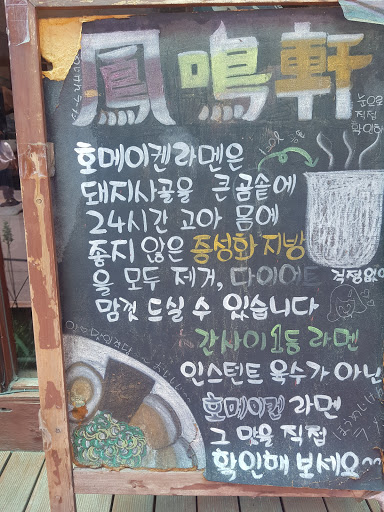 鳳鳴軒
눈으로
직접
확인하
호메이켄라멘은
돼지사골을 큰곰솥에
24시간 고아 몸에
좋지 않은 증성화 지방
을 모두 제거, 다이어트 걱정없이
맘껏 드실 수 있습니다
간사이1등 라멘
인스턴트 육수가 아닌
호메이켄 라멘
그 맛을 직접
확인해 보세요~